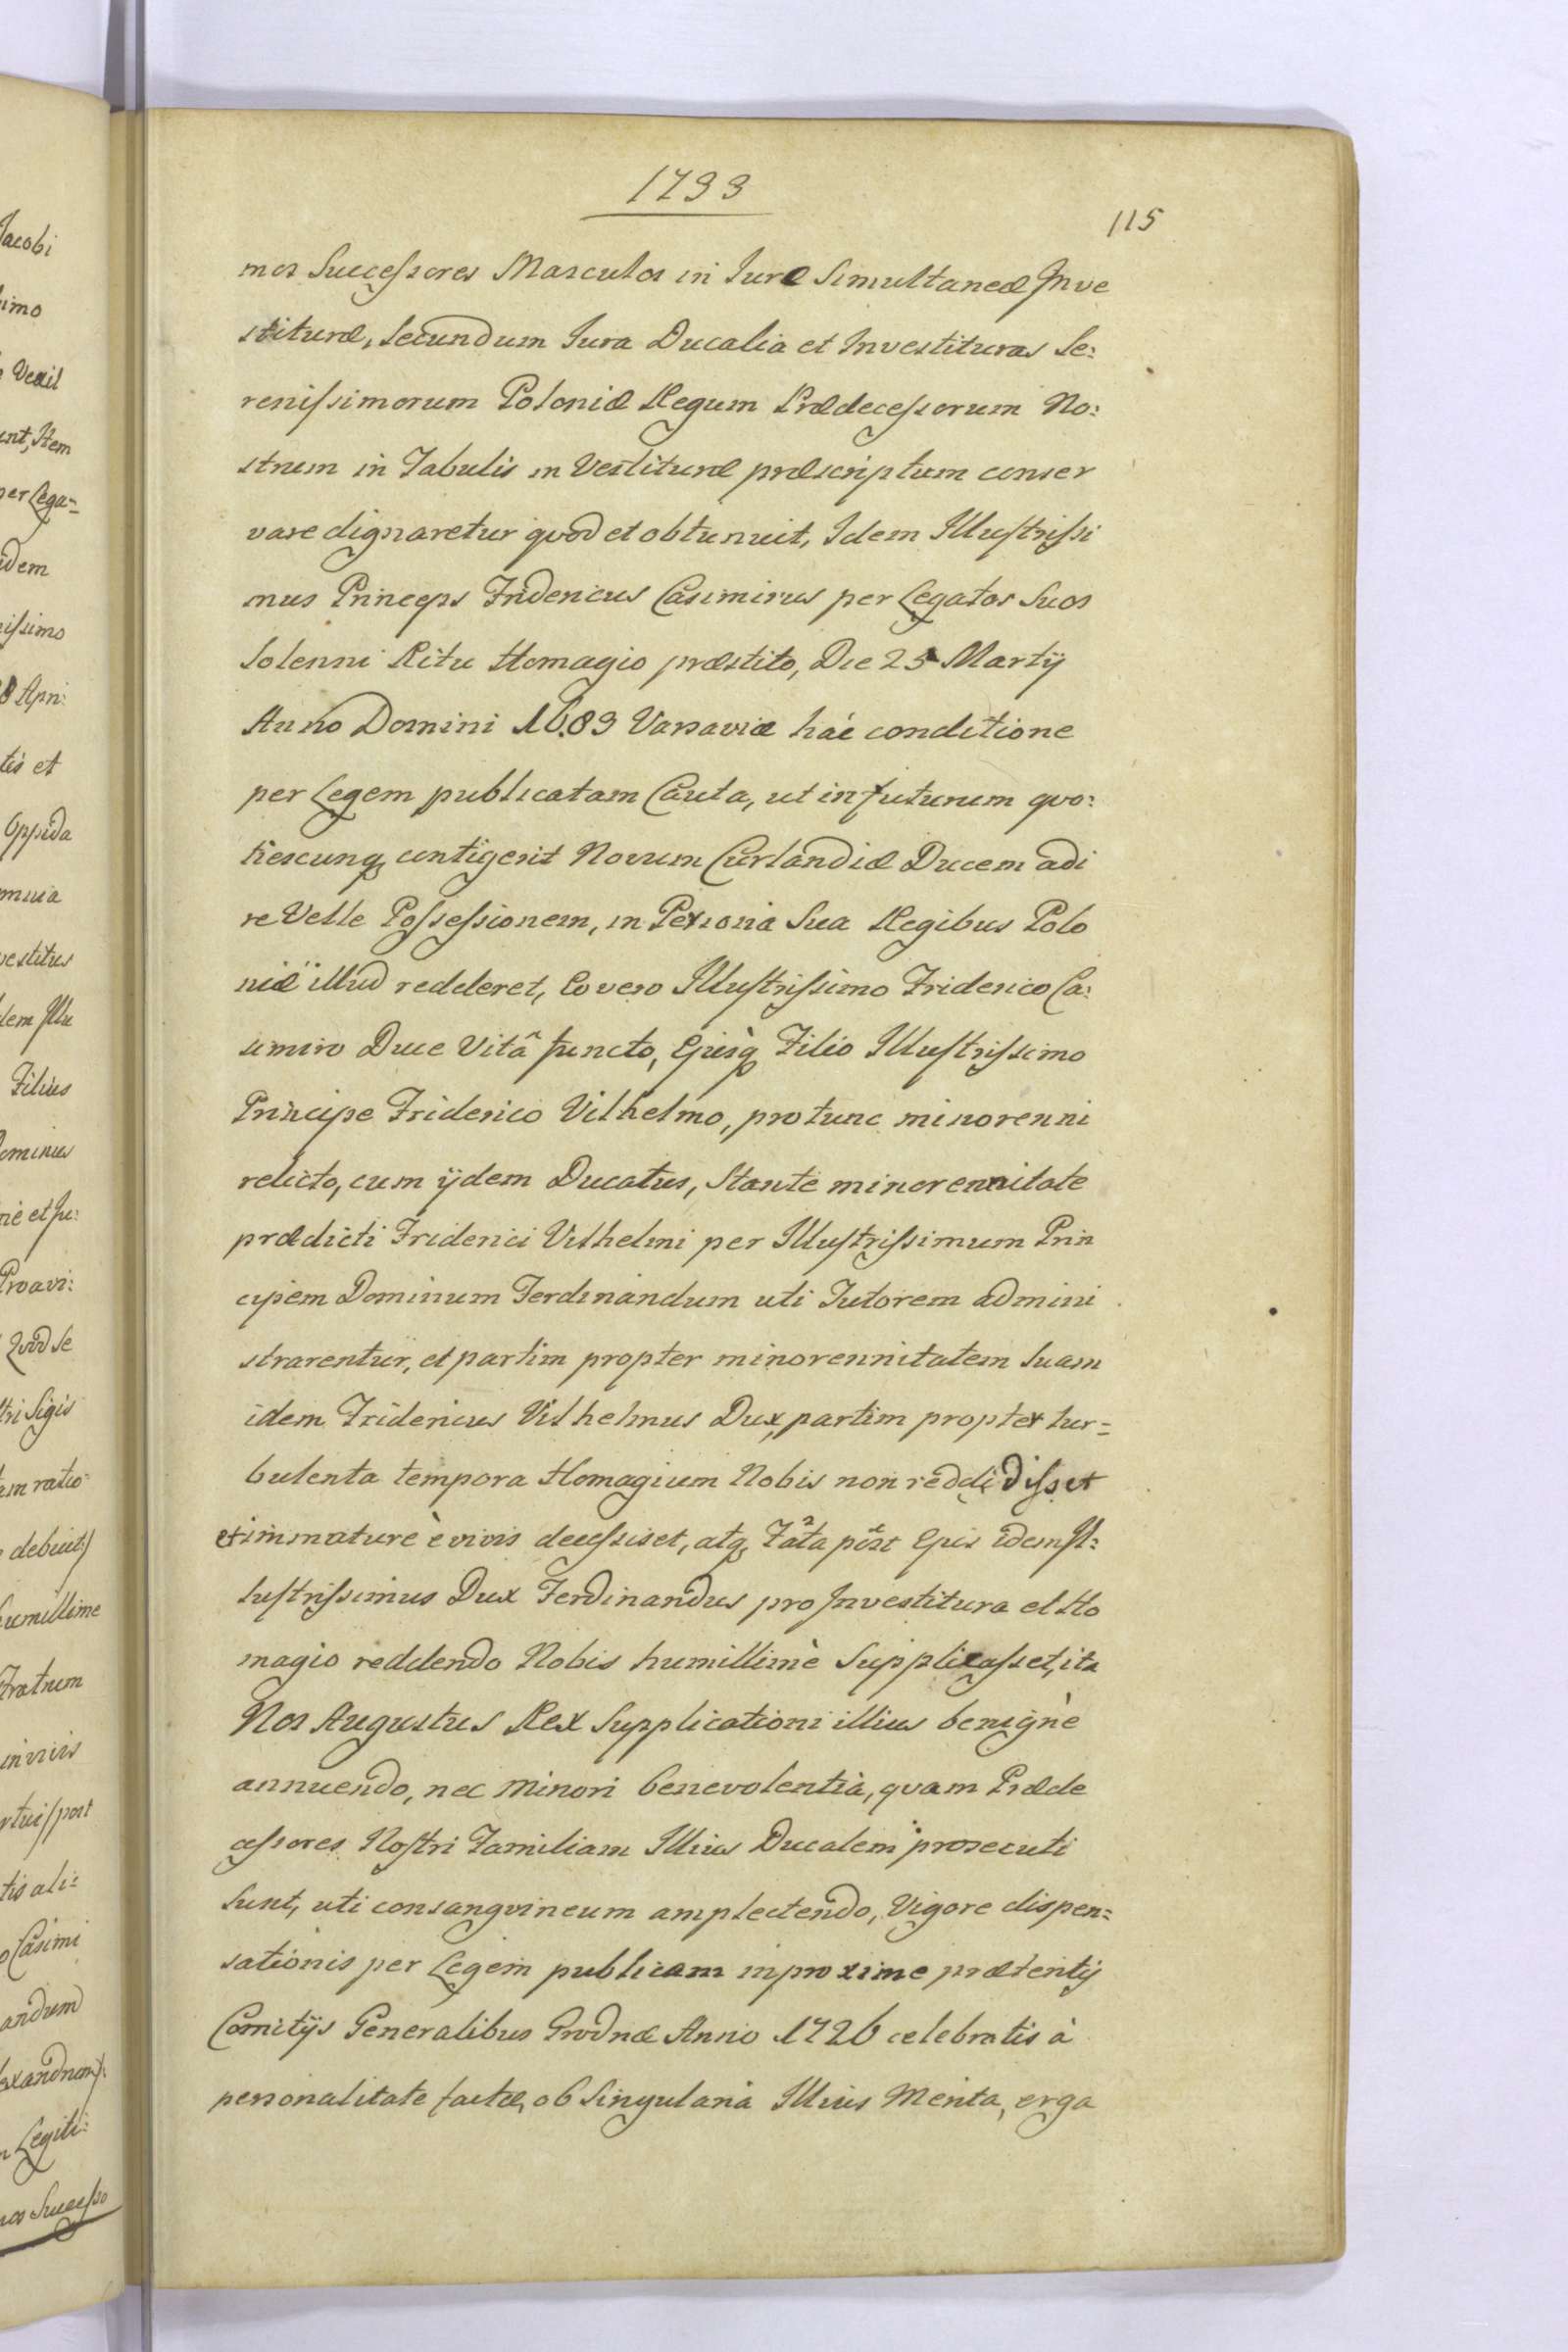 1733
115
mos Successores Masculos in Iure Simultaneæ Inve
stituræ, Secundum Iura Ducalia et Investituras Se:
renissimorum Poloniæ Regum Prædecessorum No:
strum in Tabulis in Vestituræ præscriptum conser
vare dignaretur qvod et obtunuit, Idem Illustrissi
mus Princeps Fridericus Casimirus per Legatos Suos
Solenni Ritu Homagio præstito, Die 25 Martij
Anno Domini 1689 Varsaviæ hac conditione
per Legem publicatam Cauta, ut in futurum qvo:
tiescunq contigerit Novum Curlandiæ Ducem adi
re Velle Possessionem, in Persona Sua Regibus Polo
niæ illud redderet, Eo vero Illustrissimo Friderico Ca:
simiro Duce Vitâ functo, Ejusq Filio Illustrissimo
Principe Friderico Vilhelmo, pro tunc minorenni
relicto, cum ijdem Ducatus, Stante minorennitate
prædicti Friderici Vilhelmi per Illustrissimum Prin
cipem Dominum Ferdinandum uti Tutorem admini
strarentur, et partim propter minorennitatem Suam
idem Fridericus Vilhelmus Dux, partim propter tur=
bulenta tempora Homagium Nobis non reddidisset
et immaturè è vivis decessiset, atq Fata post Ejus idem Il:
lustrissimus Dux Ferdinandus pro Investitura et Ho
magio reddendo Nobis humillimè Supplicasset, ita
Nos Augustus Rex Supplicationi illius benignè
annuendo, nec minori benevolentia, quam Præde
cessores Nostri Familiam Illius Ducalem prosecuti
Sunt, uti consangvineum amplectendo, Vigore dispen=
sationis per Legem publicam in proxime prætentij
Comitijs Generalibus Grodnæ Anno 1726 celebratis à
personalitate factæ, ob Singularia Illius Merita, erga